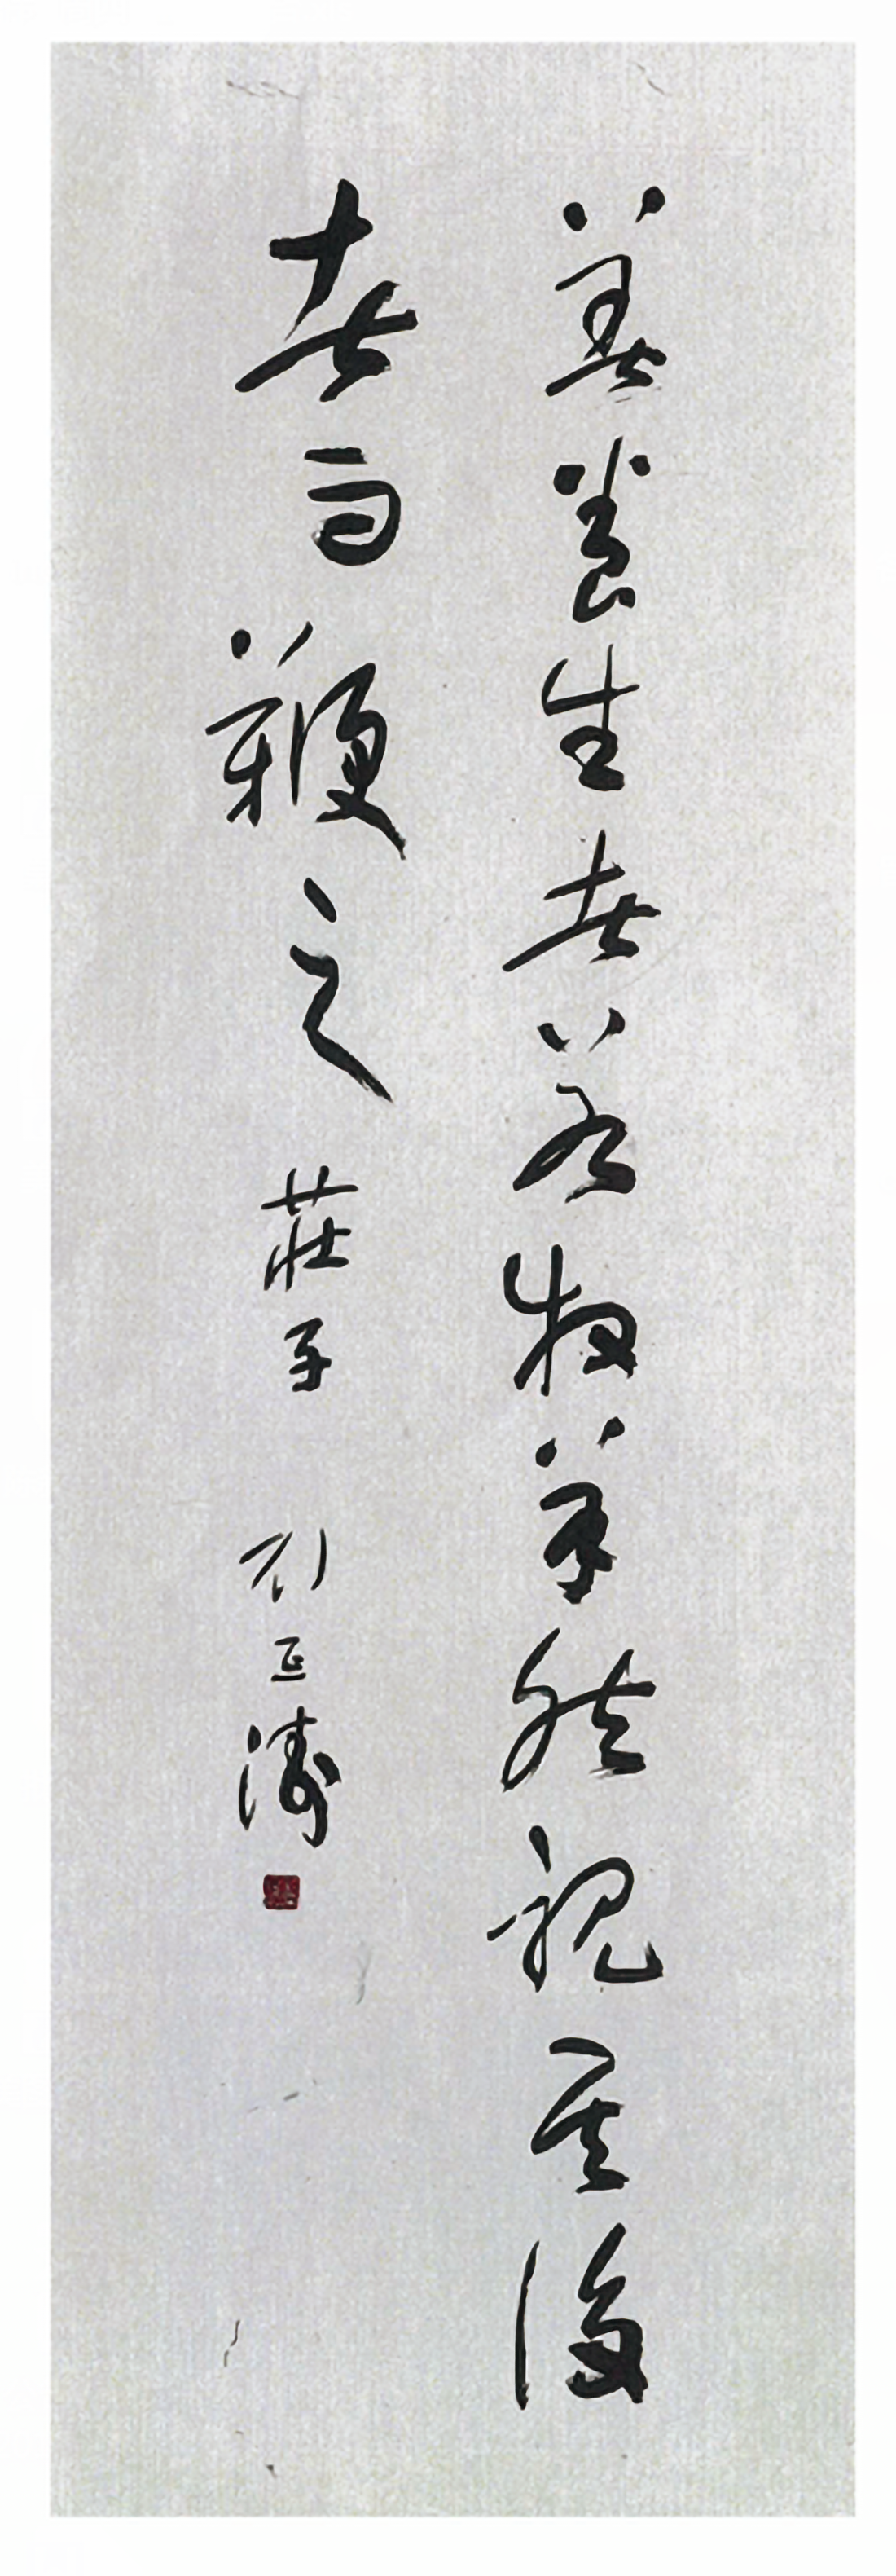 善養生者若牧羊然視其後
者而鞭之 莊子 孔正濤